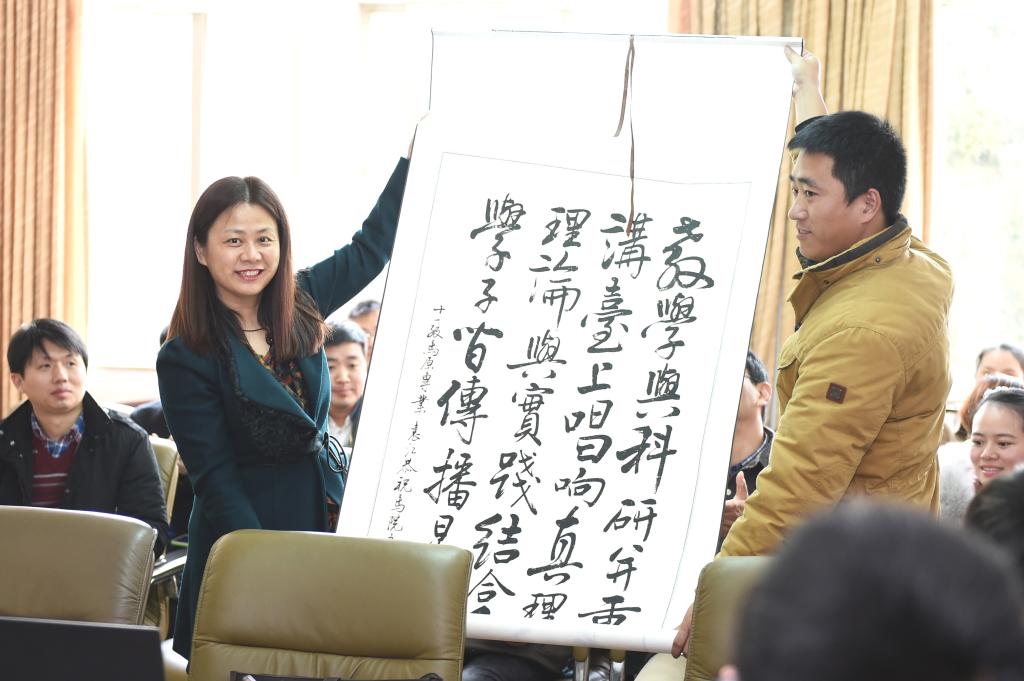 教學與科研并重
講臺上唱响真理
理論與實踐結合
學子皆傳播
十一級馬原專業 袁江恭祝馬院